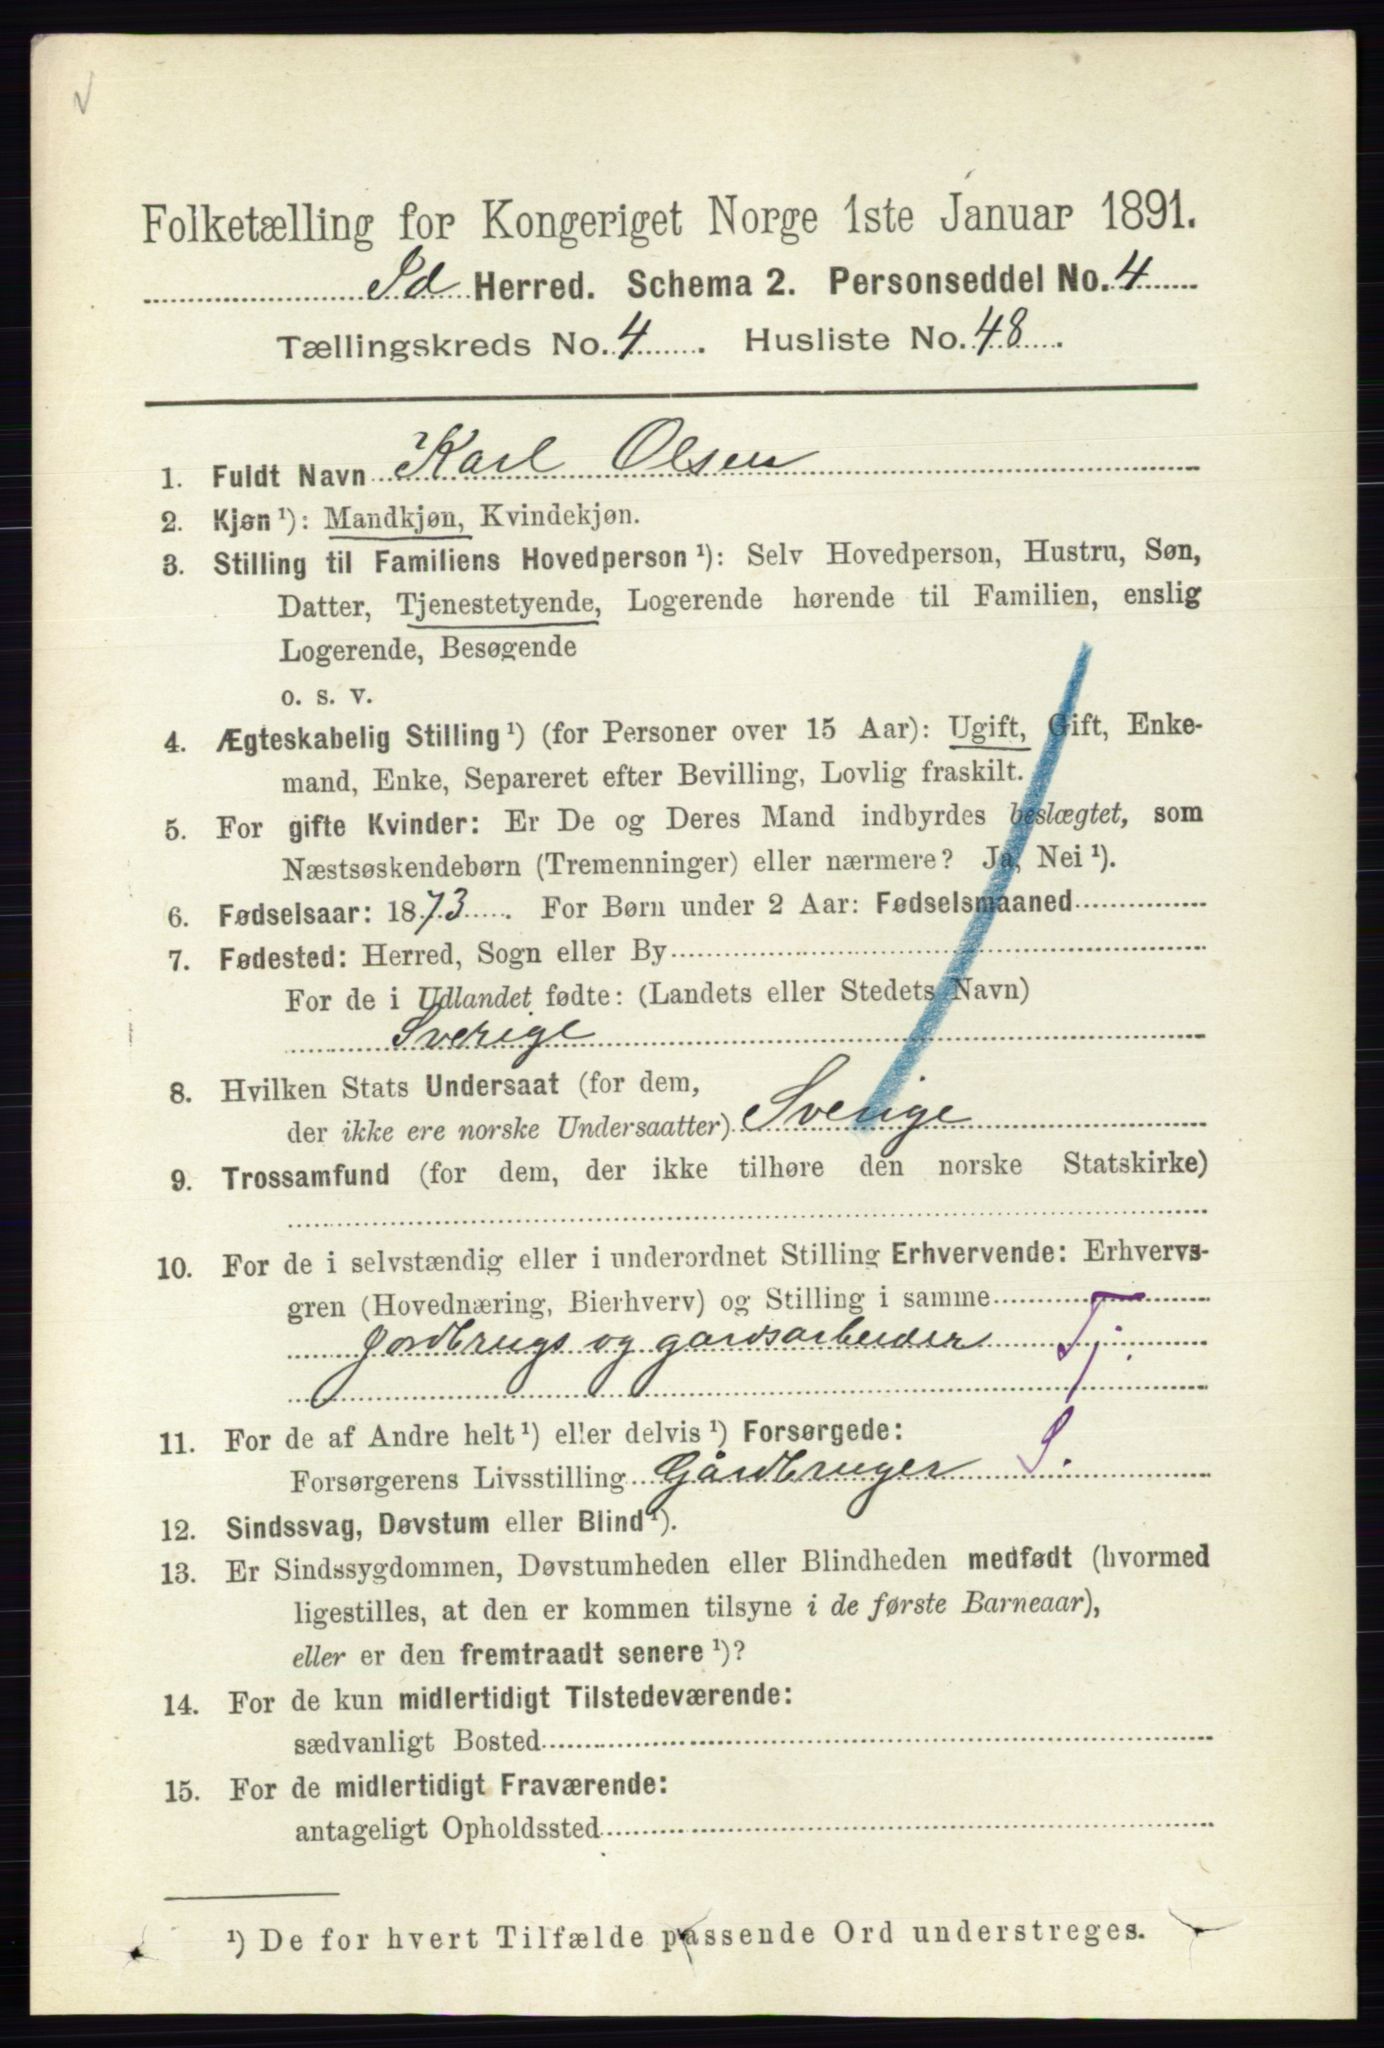 Folketælling for Kongeriget Norge 1ste Januar 1891.
Id Herred. Schema 2. Personseddel No. 4
Tællingskreds No. 4. Husliste No. 48.
1. Fuldt Navn Karl Olsen
2. Kjøn ¹): Mandkjøn, Kvindekjøn.
3. Stilling til Familiens Hovedperson ¹): Selv Hovedperson, Hustru, Søn,
Datter, Tjenestetyende, Logerende hørende til Familien, enslig
Logerende, Besøgende
o. s. v.
4. Ægteskabelig Stilling ¹) (for Personer over 15 Aar): Ugift, Gift, Enke-
mand, Enke, Separeret efter Bevilling, Lovlig fraskilt.
5. For gifte Kvinder: Er De og Deres Mand indbyrdes beslægtet, som
Næstsøskendebørn (Tremenninger) eller nærmere? Ja, Nei ¹).
6. Fødselsaar: 1873. For Børn under 2 Aar: Fødselsmaaned
7. Fødested: Herred, Sogn eller By
For de i Udlandet fødte: (Landets eller Stedets Navn)
Sverige
8. Hvilken Stats Undersaat (for dem,
der ikke ere norske Undersaatter) Sverige
9. Trossamfund (for dem, der ikke tilhøre den norske Statskirke)
10. For de i selvstændig eller i underordnet Stilling Erhvervende: Erhvervs-
gren (Hovednæring, Bierhverv) og Stilling i samme
Jordbrugs og gardsarbeider Tj.
11. For de af Andre helt ¹) eller delvis ¹) Forsørgede:
Forsørgerens Livsstilling Gårdbruger S.
12. Sindssvag, Døvstum eller Blind ¹).
13. Er Sindssygdommen, Døvstumheden eller Blindheden medfødt (hvormed
ligestilles, at den er kommen tilsyne i de første Barneaar),
eller er den fremtraadt senere ¹)?
14. For de kun midlertidigt Tilstedeværende:
sædvanligt Bosted
15. For de midlertidigt Fraværende:
antageligt Opholdssted
¹) De for hvert Tilfælde passende Ord understreges.